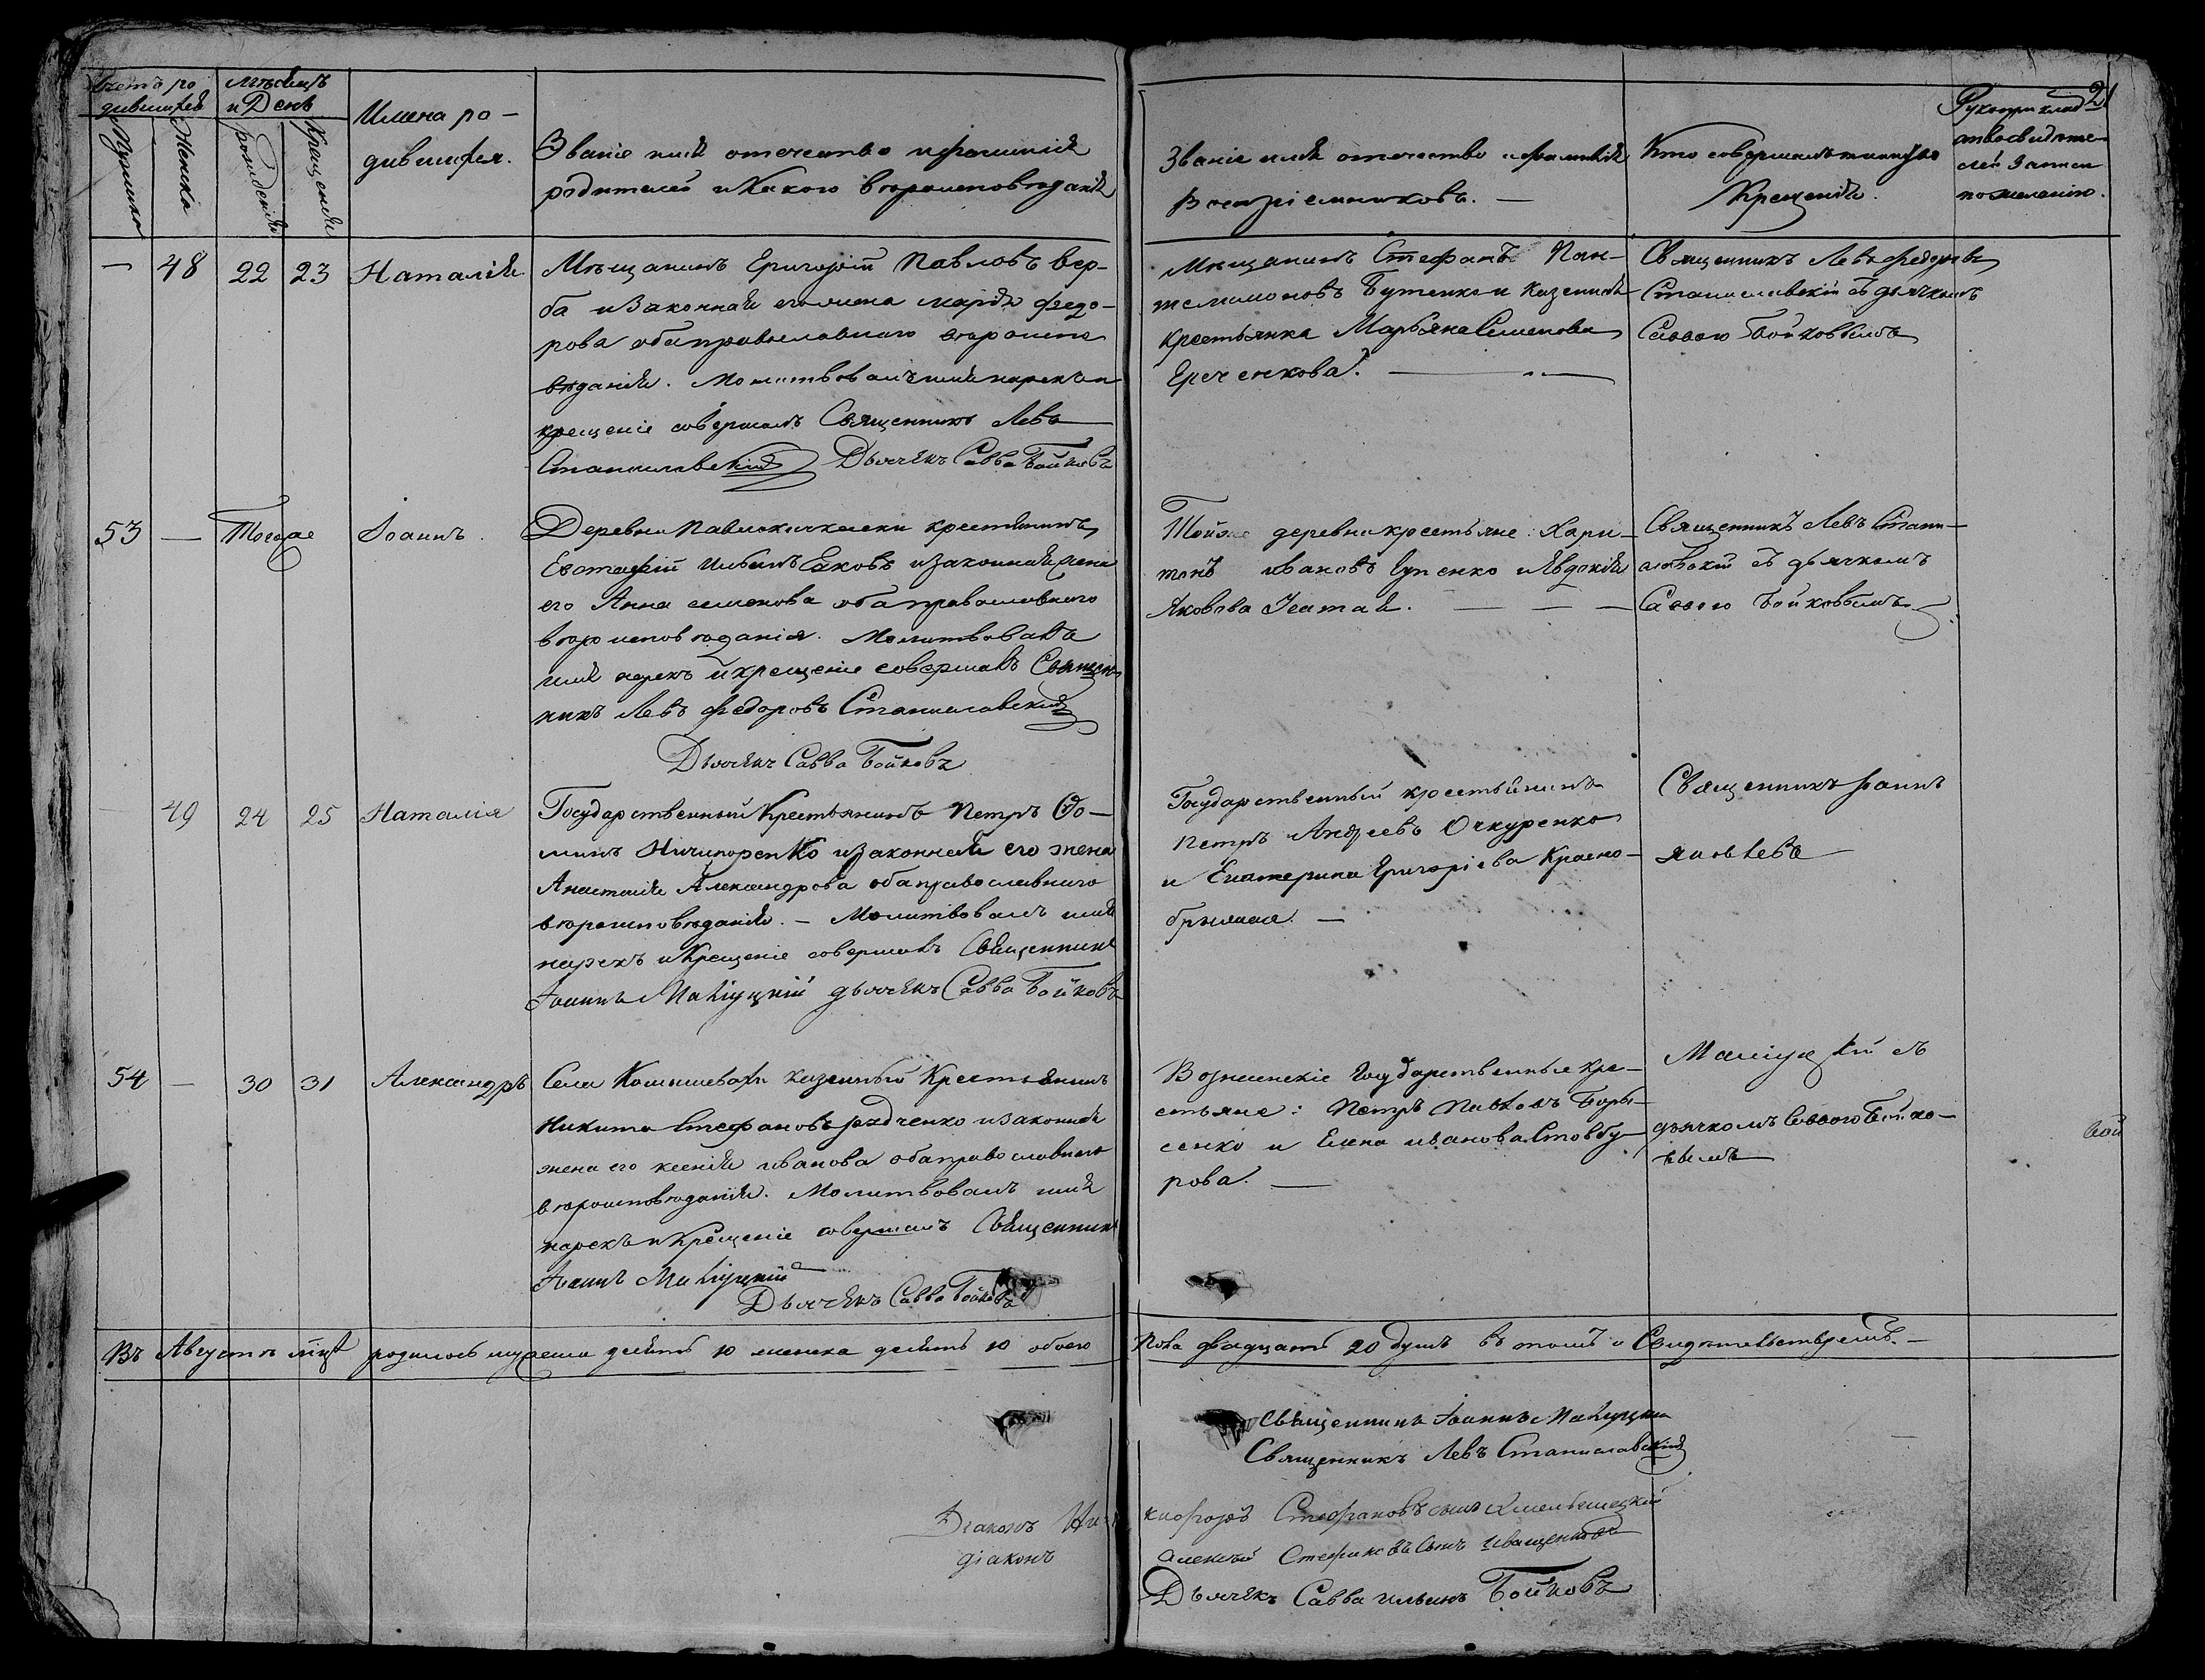 Счетъ ро
дившихся
Мужеска
Женска
Мѣсяцъ
и День
рожденія
Крещенія
Имена ро-
дившихся.
Званіе имя отечество и фамилія
родителей и Какого вѣроисповѣданія
Званіе имя отечество и фамилія
Воспріемниковъ. —
Кто совершалъ таинство
Крещенія.
21
Рукоприклад
ство свидѣте-
лей Записи
по желанію.
— 48 22 23 Наталія
Мѣщанинъ Григорій Павловъ Вер-
ба и Законная его жена Марія Федо-
рова оба православнаго вѣроиспо
вѣданія. Молитвовалъ имя нарекъ и
крещеніе совершалъ Священникъ Левъ
Станиславскій Дьячекъ Савва Бойковъ
Мѣщанинъ Стефанъ Пан-
телимоновъ Бутенко и Казенная
крестьянка Марьяна Семенова
Греченкова. —
Священникъ Левъ Федоровъ
Станиславскій съ дьячкомъ
Саввою Бойковымъ
53 — Тогоже Іоаннъ.
Деревни крестьянинъ
Евстафій и законная жена
его Анна Семенова оба православнаго
вѣроисповѣданія. Молитвовалъ
имя нарекъ и крещеніе совершалъ Священ
никъ Левъ Федоровъ Станиславскій
Дьячекъ Савва Бойковъ
Тойже деревни крестьяне: Хари-
тонъ Ивановъ и Явдокія
Яковлева — — —
Священникъ Левъ Стани-
славскій съ дьячкомъ
Саввою Бойковымъ
— 49 24 25 Наталія
Государственный Крестьянинъ Петръ Фо-
минъ Ничипоренко и законная его жена
Анастасія Александрова оба православнаго
вѣроисповѣданія. — Молитвовалъ имя
нарекъ и Крещеніе совершалъ Священникъ
Іоаннъ дьячекъ Савва Бойковъ
Государственный крестьянинъ
Петръ Андреевъ Очкуренко
и Екатерина Григорьева Красно-
Священникъ Іоаннъ
Яковлевъ
54 — 30 31 Александръ
Села Комышевахи казенный Крестьянинъ
Никита Стефановъ Радченко и законная
жена его Ксенія Иванова оба православнаго
вѣроисповѣданія. Молитвовалъ имя
нарекъ и Крещеніе совершалъ Священникъ
Іоаннъ
Дьячекъ Савва Бойковъ
Вознесенскіе Государственные кре-
стьяне: Петръ Павловъ Бори-
сенко и Елена Иванова Стовбу-
рова. —
съ
дьячкомъ Саввою Бойко-
вымъ
Въ Августѣ мцѣ родилось мужеска десять 10 женска десять 10 обоего
Пола двадцать 20 душъ въ томъ и Свидѣтельствуемъ. —
Священникъ Іоаннъ
Священникъ Левъ Станиславскій
Діаконъ Ники
форъ Стефановъ сынъ
діаконъ
Алексѣй Стефановъ Сынъ Иващенковъ
Дьячекъ Савва Ильинъ Бойковъ